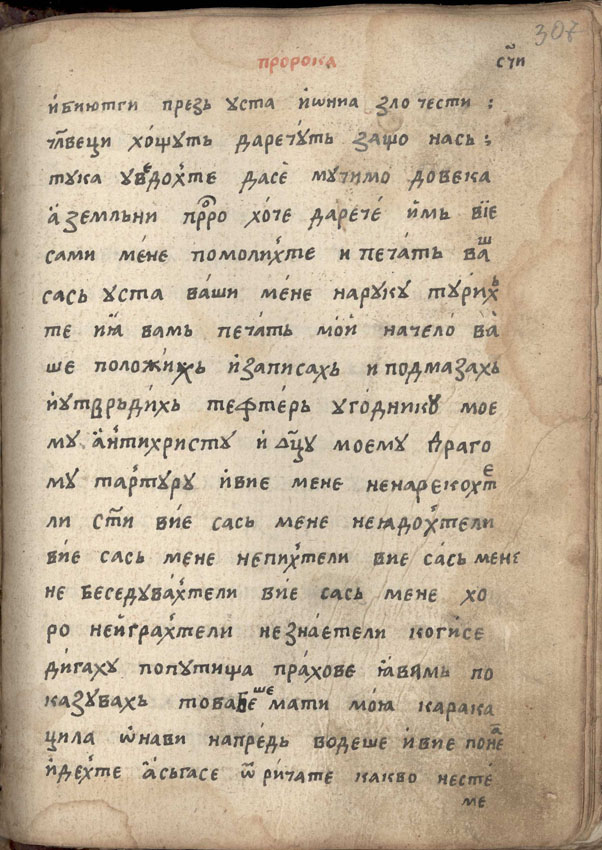 307
пророка сч҃и
и҆биютги презь уста и҆ѡниа злочести :
чл҃веци хо́щуть даречу́ть защо нась :
тука уве҆дох҆те дасѐ мучимо довека
а҆ земльни прⷪ҇ро хо́че даречѐ и҆мь вїе
сами мѐне помолих҆те и печа́ть ваⷲ
сась уста ва́ши мѐне наруку тури́хь
те и҆ꙗ҆ вамь печа́ть мо́й начело̀ ва̀
ше положи́хь и҆записахь и подмазахь
и҆утврьди́хь тефте́рь уго́днику мое
му а҆нтихристу и҆ дц҃у моему драго
му тар҆туру и҆вие мене ненарекохⷮе
ли ст҃и вїе сась мене неꙗ҆дох҆тели
вїе сась мене непих҆тели вие са́сь мене
не беседува́х҆тели вїе сась мене хо
ро неи҆грах҆тели незна́етели коги҆се
ди́гаху попути́ща пра́хове ꙗ҆вямь по
казувахь товабеⷲе мати мо́ю карака
цила ѡ҆нави напрѐдь водеше и҆вие понⷶе
и҆дех҆те а҆сьгасе ѿри́чате какво нестѐ
ме